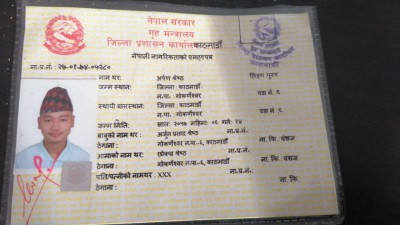 नेपाल सरकार
गृह मन्त्रालय
जिल्ला प्रशासन कार्यालय काठमाडौं
नेपाली नागरिकताको प्रमाणपत्र
ना.प्र.नं.: २७-०१-७४-०५२८०
लिङ्ग: पुरुष
नाम थर: अर्पण श्रेष्ठ
जन्म स्थान: जिल्ला: काठमाडौं
न.पा.: गोकर्णेश्वर वडा नं. ६
स्थायी बासस्थान: जिल्ला: काठमाडौं
न.पा.: गोकर्णेश्वर वडा नं. ६
जन्म मिति: साल: २०५७ महिना: ०६ गते: १४
बाबुको नाम थर: अर्जुन प्रसाद श्रेष्ठ ना.प्र.नं.:
ठेगाना: गोकर्णेश्वर न.पा.-६, काठमाडौं ना. कि. वंशज
आमाको नाम थर: श्रेष्ठ ना.प्र.नं.:
ठेगाना: गोकर्णेश्वर न.पा.-६, काठमाडौं ना. कि. वंशज
पति/पत्नीको नामथर: XXX ना.प्र.नं.:
ठेगाना: ना. कि.